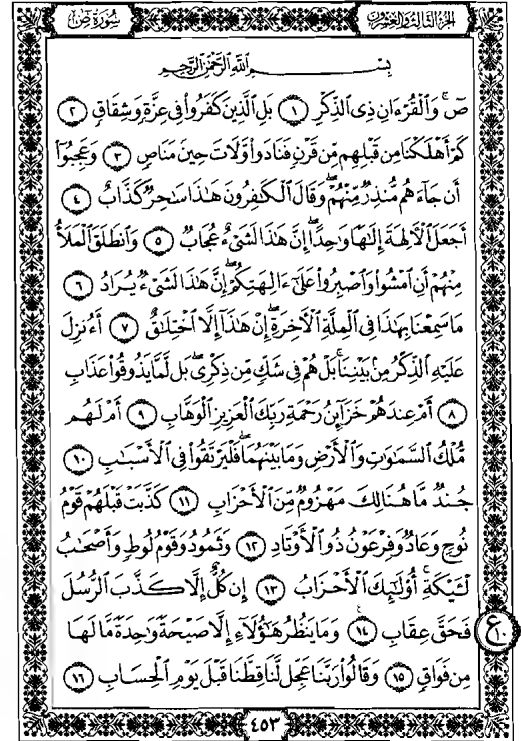 الجزء الثالث والعشرون
سورة ص
بِسْمِ ٱللَّهِ ٱلرَّحْمَٰنِ ٱلرَّحِيمِ
صٓ ۚ وَٱلْقُرْءَانِ ذِى ٱلذِّكْرِ ١ بَلِ ٱلَّذِينَ كَفَرُوا۟ فِى عِزَّةٍ وَشِقَاقٍ ٢
كَمْ أَهْلَكْنَا مِن قَبْلِهِم مِّن قَرْنٍ فَنَادَوا۟ وَّلَاتَ حِينَ مَنَاصٍ ٣ وَعَجِبُوٓا۟
أَن جَآءَهُم مُّنذِرٌ مِّنْهُمْ ۖ وَقَالَ ٱلْكَٰفِرُونَ هَٰذَا سَٰحِرٌ كَذَّابٌ ٤
أَجَعَلَ ٱلْءَالِهَةَ إِلَٰهًا وَٰحِدًا ۖ إِنَّ هَٰذَا لَشَىْءٌ عُجَابٌ ٥ وَٱنطَلَقَ ٱلْمَلَأُ
مِنْهُمْ أَنِ ٱمْشُوا۟ وَٱصْبِرُوا۟ عَلَىٰٓ ءَالِهَتِكُمْ ۖ إِنَّ هَٰذَا لَشَىْءٌ يُرَادُ ٦
مَا سَمِعْنَا بِهَٰذَا فِى ٱلْمِلَّةِ ٱلْءَاخِرَةِ ۖ إِنْ هَٰذَآ إِلَّا ٱخْتِلَٰقٌ ٧ أَءُنزِلَ
عَلَيْهِ ٱلذِّكْرُ مِنۢ بَيْنِنَا ۚ بَلْ هُمْ فِى شَكٍّ مِّن ذِكْرِى ۖ بَل لَّمَّا يَذُوقُوا۟ عَذَابِ
٨ أَمْ عِندَهُمْ خَزَآئِنُ رَحْمَةِ رَبِّكَ ٱلْعَزِيزِ ٱلْوَهَّابِ ٩ أَمْ لَهُم
مُّلْكُ ٱلسَّمَٰوَٰتِ وَٱلْأَرْضِ وَمَا بَيْنَهُمَا ۖ فَلْيَرْتَقُوا۟ فِى ٱلْأَسْبَٰبِ ١٠
جُندٌ مَّا هُنَالِكَ مَهْزُومٌ مِّنَ ٱلْأَحْزَابِ ١١ كَذَّبَتْ قَبْلَهُمْ قَوْمُ
نُوحٍ وَعَادٌ وَفِرْعَوْنُ ذُو ٱلْأَوْتَادِ ١٢ وَثَمُودُ وَقَوْمُ لُوطٍ وَأَصْحَٰبُ
لْـَٔيْكَةِ ۚ أُو۟لَٰٓئِكَ ٱلْأَحْزَابُ ١٣ إِن كُلٌّ إِلَّا كَذَّبَ ٱلرُّسُلَ
فَحَقَّ عِقَابِ ١٤ وَمَا يَنظُرُ هَٰٓؤُلَآءِ إِلَّا صَيْحَةً وَٰحِدَةً مَّا لَهَا
ع ١٠
مِن فَوَاقٍ ١٥ وَقَالُوا۟ رَبَّنَا عَجِّل لَّنَا قِطَّنَا قَبْلَ يَوْمِ ٱلْحِسَابِ ١٦
٤٥٣